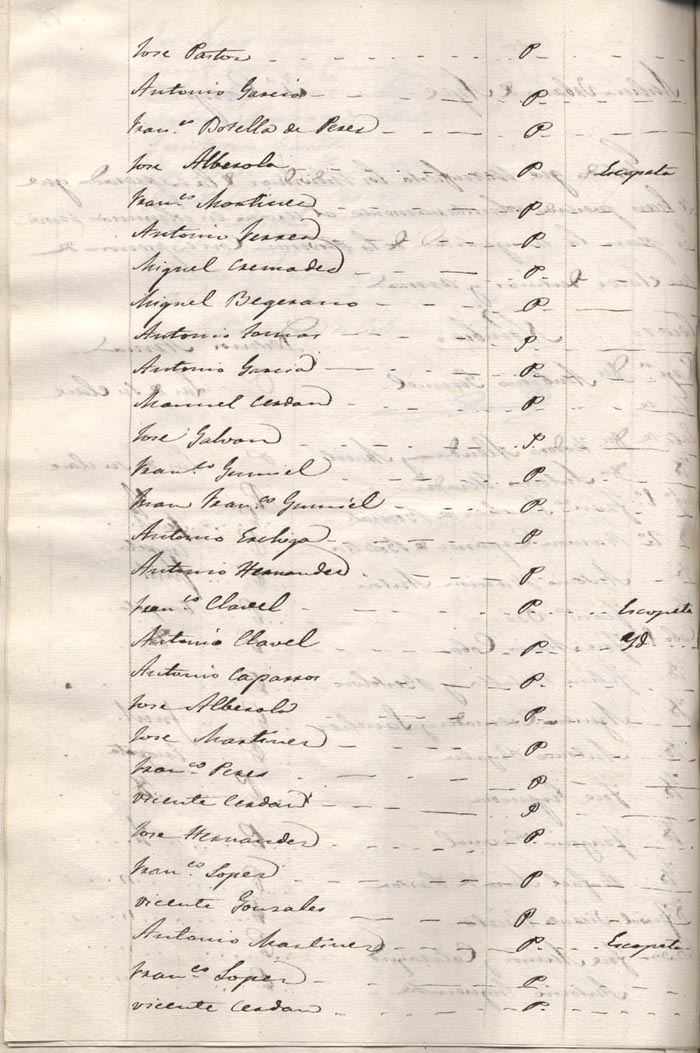 Jose Pastor - - - - - - P - - -
Antonio Garcia - - - - - P - - -
Fran.co Botella de Peres - - - P - - -
Jose Alberola - - - - - P - - Escopeta
Fran.co Martinez - - - P - - -
Antonio Ferrer - - - - P - - -
Miguel Cremades - - - P - - -
Miguel Begerano - - - P - - -
Antonio Tomas - - - - P - - -
Antonio Garcia - - - - P - - -
Manuel Cerdan - - - - P - - -
Jose Galvan - - - - P - - -
Fran.co Gumiel - - - - P - - -
Juan Fran.co Gumiel - - - P - - -
Antonio - - - - P - - -
Antonio Hernandez - - - P - - -
Fran.co Clavel - - - - P - - Escopeta
Antonio Clavel - - - P - - Yd
Antonio Caparros - - - P - - -
Jose Alberola - - - - P - - -
Jose Martinez - - - - P - - -
Fran.co Peres - - - - P - - -
Vicente Cerdan - - - - P - - -
Jose Hernandez - - - - P - - -
Fran.co Lopez - - - - P - - -
Vicente Gonzales - - - P - - -
Antonio Martinez - - - P - - Escopeta
Fran.co Lopez - - - - P - - -
Vicente Cerdan - - - - P - - -